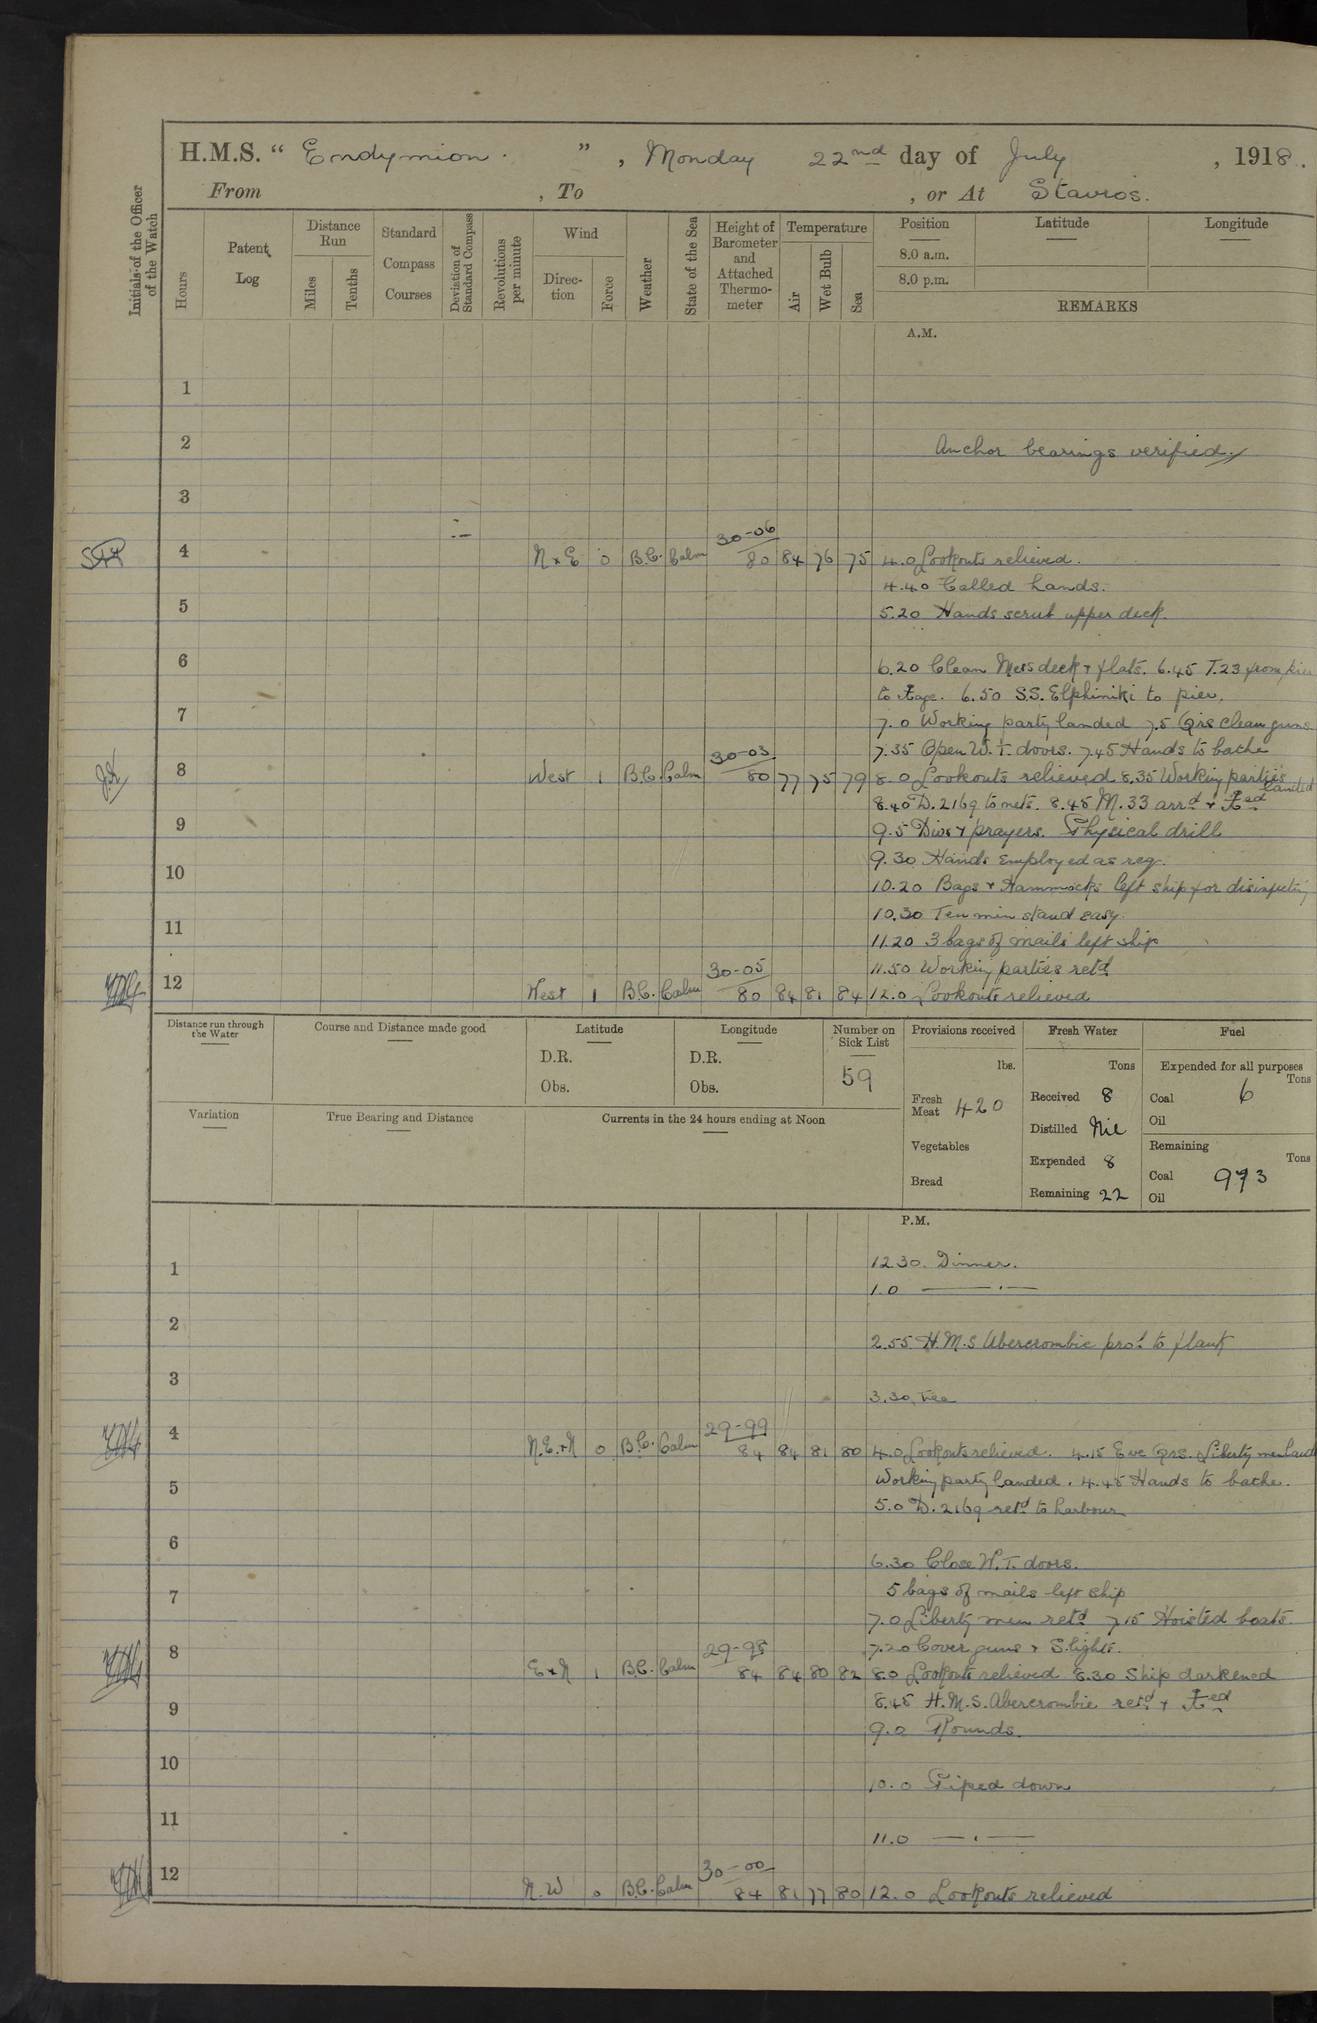 H.M.S. " Endymion. ", Monday 22nd day of July, 1918.
From , To , or At Stavros.
Initials of the Officer of the Watch
Hours
Patent Log
Distance Run
Miles
Tenths
Standard Compass Courses
Deviation of Standard Compass
Revolutions per minute
Wind
Direction
Force
Weather
State of the Sea
Height of Barometer and Attached Thermometer
Temperature
Air
Wet Bulb
Sea
Position
Latitude
Longitude
8.0 a.m.
8.0 p.m.
REMARKS
A.M.
1
2
Anchor bearings verified.
3
4 N x E 0 B.C. Calm 30-06 80 84 76 75 4.0 Lookouts relieved.
4.40 Called hands.
5
5.20 Hands scrub upper deck.
6
6.20 Clean Mess deck & flats. 6.45 T.23 from pier
to 6.50 S.S. Elphiniki to pier.
7
7.0 Working party landed 7.5 Qrs clean guns
7.35 Open W.T. doors. 7.45 Hands to bathe
8 West 1 B.C. Calm 30-03 80 77 75 79 8.0 Lookouts relieved 8.35 Working parties landed
8.40 D.2169 to nets. 8.45 M.33 arrd &
9
9.5 Divs & prayers. Physical drill
9.30 Hands Employed as reg.
10
10.20 Bags & Hammocks left ship for disinfecting
10.30 Ten min stand easy.
11
11.20 3 bags of mails left ship
11.50 Working parties retd
12 West 1 B.C. Calm 30-05 80 84 81 84 12.0 Lookouts relieved
Distance run through the Water
Course and Distance made good
Latitude
D.R.
Obs.
Longitude
D.R.
Obs.
Number on Sick List
59
Provisions received
lbs.
Fresh Meat 420
Vegetables
Bread
Fresh Water
Tons
Received 8
Distilled Nil
Expended 8
Remaining 22
Fuel
Expended for all purposes
Tons
Coal 6
Oil
Remaining
Tons
Coal 973
Oil
Variation
True Bearing and Distance
Currents in the 24 hours ending at Noon
P.M.
1
12.30. Dinner.
1.0 — . —
2
2.55 H.M.S Abercrombie prod to flank
3
3.30, Tea
4 N.E.xN 0 B.C. Calm 29-99 84 84 81 80 4.0 Lookouts relieved. 4.15 Eve Qrs. Liberty men land
Working party landed. 4.45 Hands to bathe.
5
5.0 D.2169 retd to harbour
6
6.30 Close W.T. doors.
5 bags of mails left ship
7
7.0 Liberty men retd 7.15 Hoisted boats.
7.20 Cover guns & Slights.
8 E x N 1 B.C. Calm 29-95 84 84 80 82 8.0 Lookouts relieved 8.30 Ship darkened
8.45 H.M.S. Abercrombie retd &
9
9.0 Rounds.
10
10.0 Piped down
11
11.0 — . —
12 N.W 0 B.C. Calm 30-00 84 81 77 80 12.0 Lookouts relieved